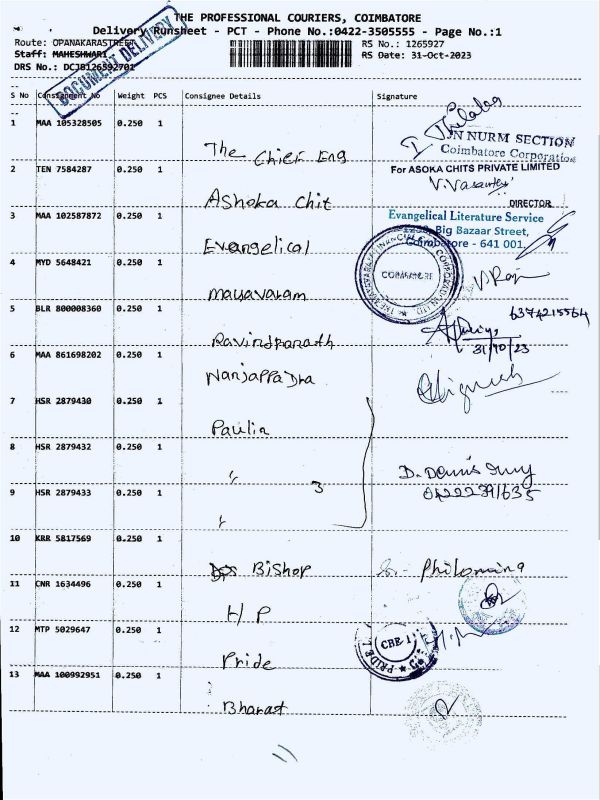 THE PROFESSIONAL COURIERS, COIMBATORE
Delivery Runsheet - PCT - Phone No.:0422-3505555 - Page No.:1
Route: OPANAKARASTREET
RS No.: 1265927
Staff: MAHESHWARI
RS Date: 31-Oct-2023
DRS No.: DCJB126592701
DOCUMENT DELIVERY
S No Consignment No Weight PCS Consignee Details Signature
1 MAA 105328505 0.250 1
The Chief Eng
JN NURM SECTION
Coimbatore Corporation
2 TEN 7584287 0.250 1
For ASOKA CHITS PRIVATE LIMITED
V.Vasanthi
Ashoka Chit
DIRECTOR
3 MAA 102587872 0.250 1
Evangelical Literature Service
Big Bazaar Street,
Coimbatore - 641 001.
Evangelical
4 MYD 5648421 0.250 1
COIMBATORE
mayavaram
5 BLR 800008360 0.250 1
6374215564
31/10/23
Ravindranath
6 MAA 861698202 0.250 1
Nanjappa Dra
7 HSR 2879430 0.250 1
Paulin
8 HSR 2879432 0.250 1
〃 3
9 HSR 2879433 0.250 1
〃
10 KRR 5817569 0.250 1
Bishop
Philomina
11 CNR 1634496 0.250 1
H P
12 MTP 5029647 0.250 1
CBE-1
PRIDE
Pride
13 MAA 100992951 0.250 1
Bharat